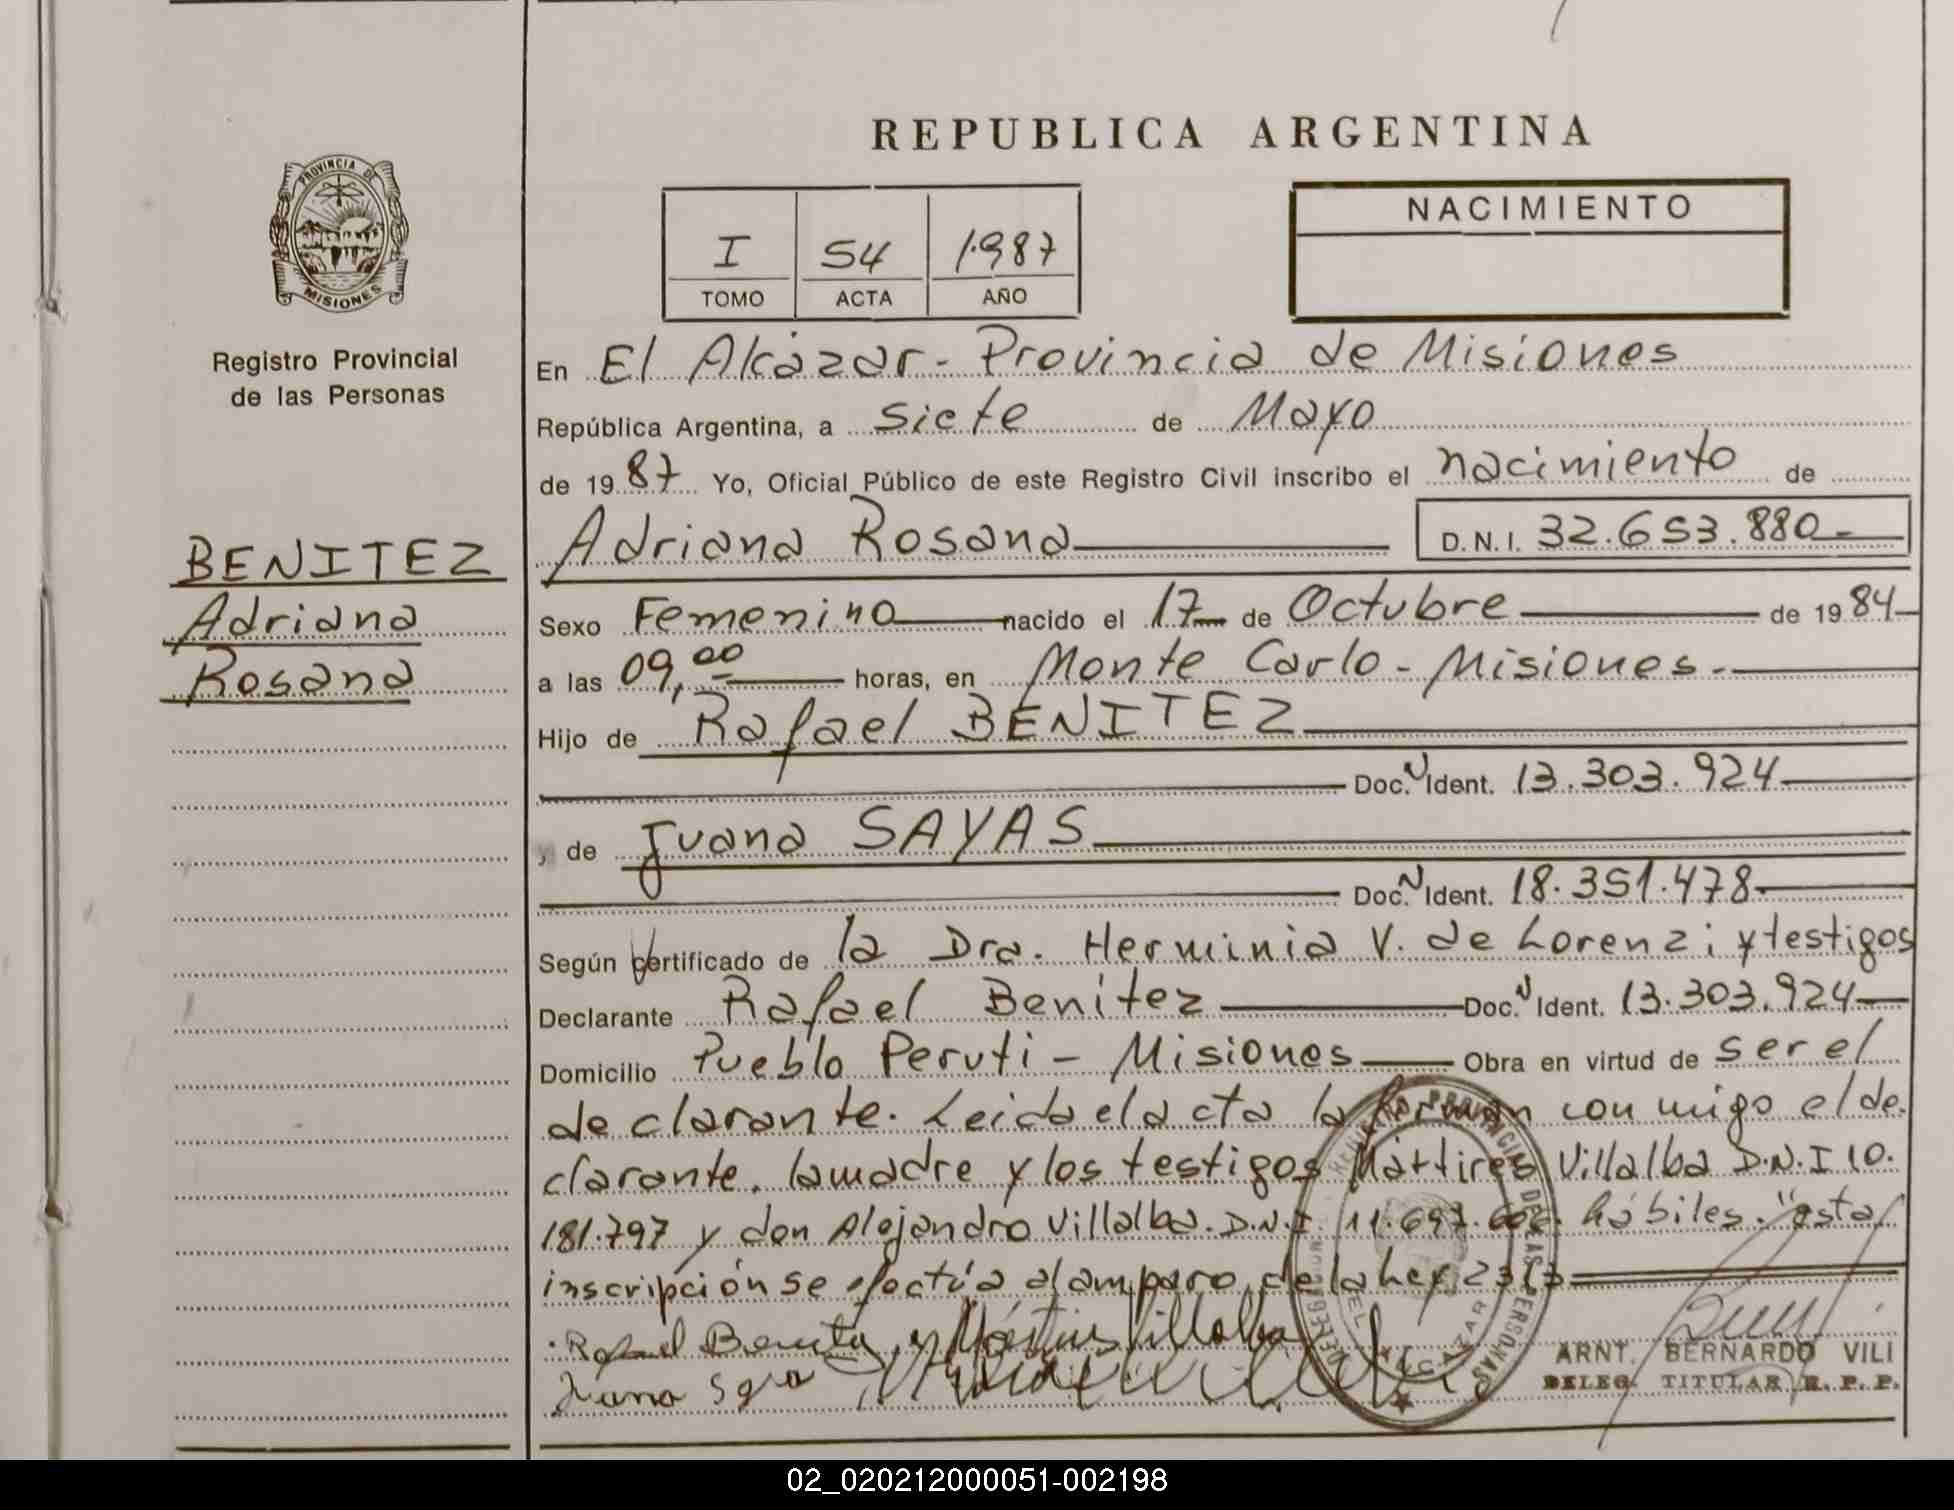 REPUBLICA ARGENTINA
PROVINCIA DE
MISIONES
Registro Provincial
de las Personas
I 54 1.987
TOMO ACTA AÑO
NACIMIENTO
En El Alcázar - Provincia de Misiones
República Argentina, a siete de Mayo
de 1987 Yo, Oficial Público de este Registro Civil inscribo el nacimiento de
BENITEZ
Adriana
Rosana
Adriana Rosana D.N.I. 32.653.880-
Sexo Femenino nacido el 17 de Octubre de 1984
a las 09,00 horas, en Monte Carlo - Misiones.
Hijo de Rafael BENITEZ
Doc. N Ident. 13.303.924
y de Juana SAYAS
Doc. N Ident. 18.351.478
Según certificado de la Dra. Herminia V. de Lorenzi y testigos
Declarante Rafael Benitez Doc. N Ident. 13.303.924
Domicilio Pueblo Peruti - Misiones Obra en virtud de ser el
declarante. Leida el acta la firman con migo el de.
clarante. la madre y los testigos Mártires Villalba D.N.I 10.
181.797 y don Alejandro Villalba. D.N.I. 11.697. hábiles. "esta
inscripción se efectúa al amparo de la Ley
Rafael Benitez Mártires Villalba
Juana
REGISTRO PROVINCIAL DE LAS PERSONAS
DELEGACION
EL ALCAZAR
ARNT. BERNARDO VILI
DELEG. TITULAR R. P. P.
02_020212000051-002198